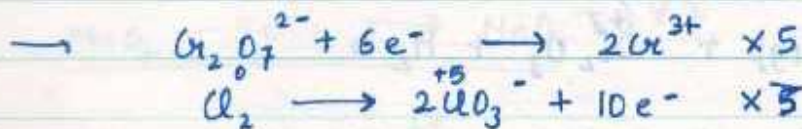 → Cr₂O₇²⁻ + 6e⁻ → 2Cr³⁺ ×5
0 +5
Cl₂ → 2ClO₃⁻ + 10e⁻ ×3